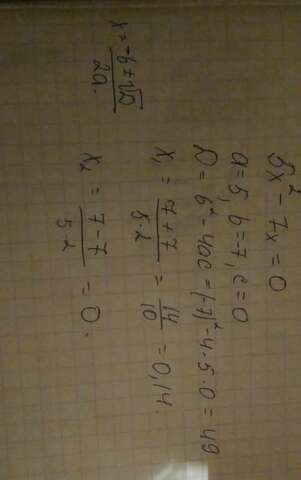 5x² - 7x = 0
a = 5, b = -7, c = 0
D = b² - 4ac = (-7)² - 4 · 5 · 0 = 49
x₁ = (7 + 7)/(5·2) = 14/10 = 0,14.
x₂ = (7 - 7)/(5·2) = 0.
x = (-b ± √D)/(2a).